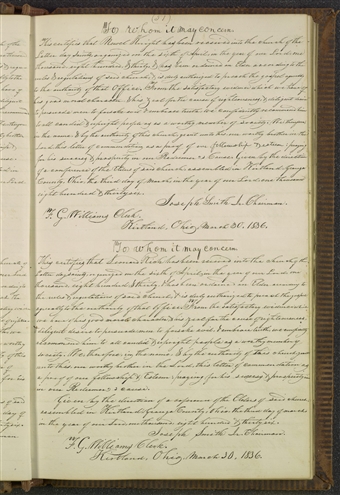 To whom it may concern
This certifies that Reuel Wright has been received into the church of the
Latter day Saints, organized on the sixth of April, in the year of our Lord, one
thousand, eight hundred, & thirty, & has been ordained an Elder according to the
rules & regulations of said church, & is duly authorized to preach the gospel agreeably
to the authority of that Office. From the satisfactory evidence which we have of
his good moral character, & his zeal for the cause of righteousness, & diligent desire
to persuade men to forsake evil & embrace truth, we confidently recommend him
to all candid & upright people as a worthy member of society. We therefore,
in the name, & by the authority of this church, grant unto this our worthy brother in the
Lord, this letter of commendation as a proof of our fellowship & esteem: praying
for his success & prosperity in our Redeemer's cause. Given by the direction
of a conference of the Elders of said church, assembled in Kirtland, Geauga
County, Ohio, the third day of March, in the year of our Lord, one thousand
eight hundred & thirty six.
Joseph Smith Jr. Chairman
F. G. Williams Clerk.
Kirtland, Ohio, March 30, 1836.
To whom it may concern
This certifies that has been received into the church of the
Latter day Saints, organized on the sixth of April, in the year of our Lord, one
thousand, eight hundred & thirty, & has been ordained an Elder according to
the rules & regulations of said church, & is duly authorized to preach the gospel
agreeably to the authority of that office. From the satisfactory evidence which
we have of his good moral character, & his zeal for the cause of righteousness,
& diligent desire to persuade men to forsake evil & embrace truth, we confidently
recommend him to all candid & upright people as a worthy member of
society. We therefore, in the name, & by the authority of this church, grant
unto this, our worthy brother in the Lord, this letter of commendation as
a proof of our fellowship & Esteem: praying for his success & prosperity
in our Redeemer's cause.
Given by the direction of a conference of the Elders of said church
assembled in Kirtland, Geauga County, Ohio, the third day of March
in the year of our Lord, one thousand, eight hundred & thirty six.
Joseph Smith Jr. Chairman
F. G. Williams Clerk.
Kirtland, Ohio, March 30, 1836.